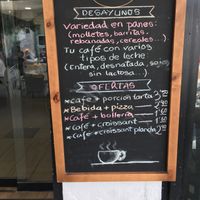 DESAYUNOS
Variedad en panes:
(molletes, barritas,
rebanadas, cereales...)
Tu café con varios
tipos de leche
(Entera, desnatada, soja,
sin lactosa...)
OFERTAS
*café + porción tarta
*Bebida + pizza
*Café + bollería
*café + croissant
*café + croissant plancha